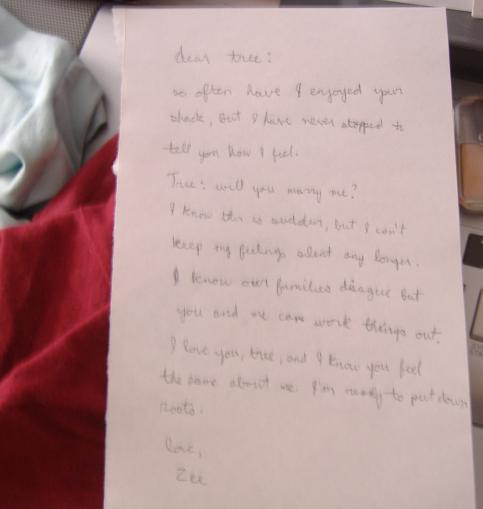 dear tree:
so often have I enjoyed your
shade, but I have never stopped to
tell you how I feel.
Tree: will you marry me?
I know this is sudden, but I can't
keep my feelings silent any longer.
I know our families disagree but
you and me can work things out.
I love you, tree, and I know you feel
the same about me. I'm ready to put down
roots.
love,
Zee